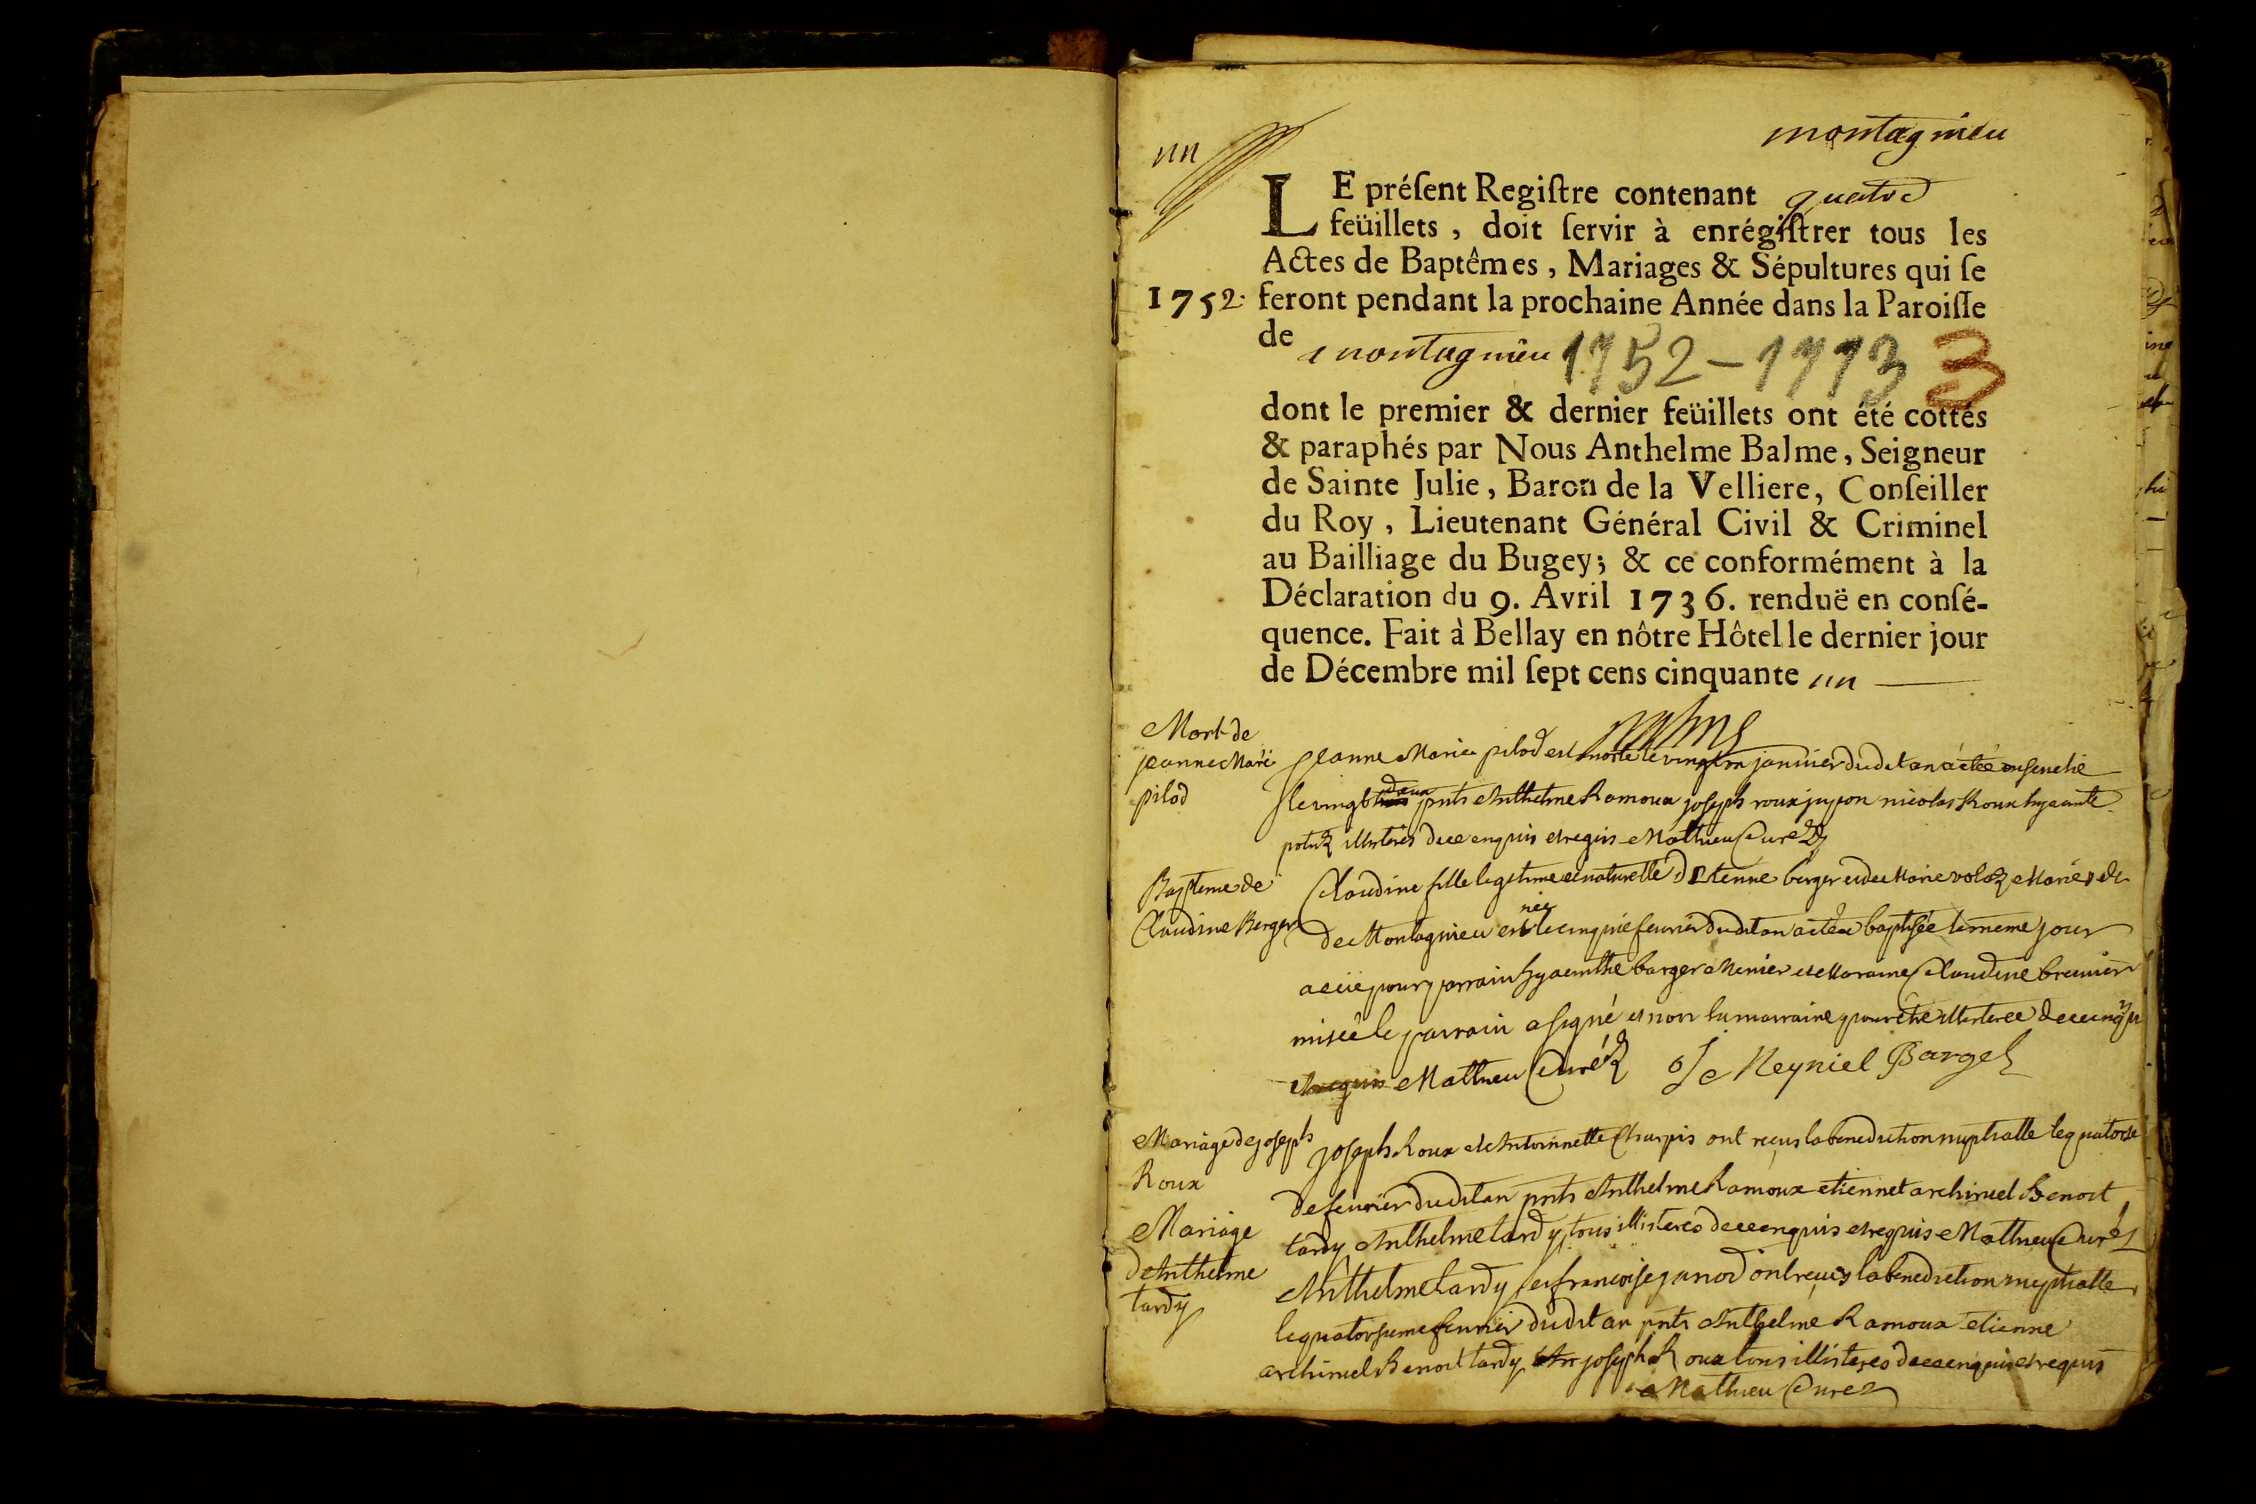 montagnieu
un
LE préſent Regiſtre contenant quatre
feüillets, doit ſervir à enrégiſtrer tous les
Actes de Baptêmes, Mariages & Sépultures qui ſe
1752. feront pendant la prochaine Année dans la Paroiſſe
de montagnieu 1752-1773 3
dont le premier & dernier feüillets ont été cottés
& paraphés par Nous Anthelme Balme, Seigneur
de Sainte Julie, Baron de la Velliere, Conſeiller
du Roy, Lieutenant Général Civil & Criminel
au Bailliage du Bugey; & ce conformément à la
Déclaration du 9. Avril 1736. renduë en conſé-
quence. Fait à Bellay en nôtre Hôtel le dernier jour
de Décembre mil ſept cens cinquante un
Balme
Mort de
jeanne Marie
pilod
jeanne Marie pilod est morte le vingt un janvier dudit an a etée ensevelie
le vingt deux pnts Anthelme Ramoux joseph roux jupon nicolas Roux hyacinte
illisterés de ce enquis et requis Mathieu Curé
Bapteme de
Claudine Berger
Claudine fille legitime et naturelle d'Etienne berger et de Marie voloz Mariés de
de Montagnieu est née le cinquie fevrier dudit an a etée baptisée le meme jour
a eüe pour parrain hyacinthe barger Menier et Maraine Claudine breunier
misée le parrain a signé et non la marraine pour etre illisteree de ce enquis
et requis Mathieu Curé Je Meyniel Barges
Mariage de joseph
Roux
joseph Roux et Antoinnette Charpis ont reçus la benediction nuptialle le quatorze
de fevrier dudit an pnts Anthelme Ramoux etiennet archiruel Benoit
tardy Anthelme tardy tous illisterés de ce enquis et requis Mathieu Curé
Mariage
de Anthelme
tardy
Anthelme tardy et francoise junod ont reçus la benediction nuptialle
le quatorsieme fevrier dudit an pnts Anthelme Ramoux etienne
archiruel Benoit tardy joseph Roux tous illisterés de ce enquis et requis
Mathieu Curé